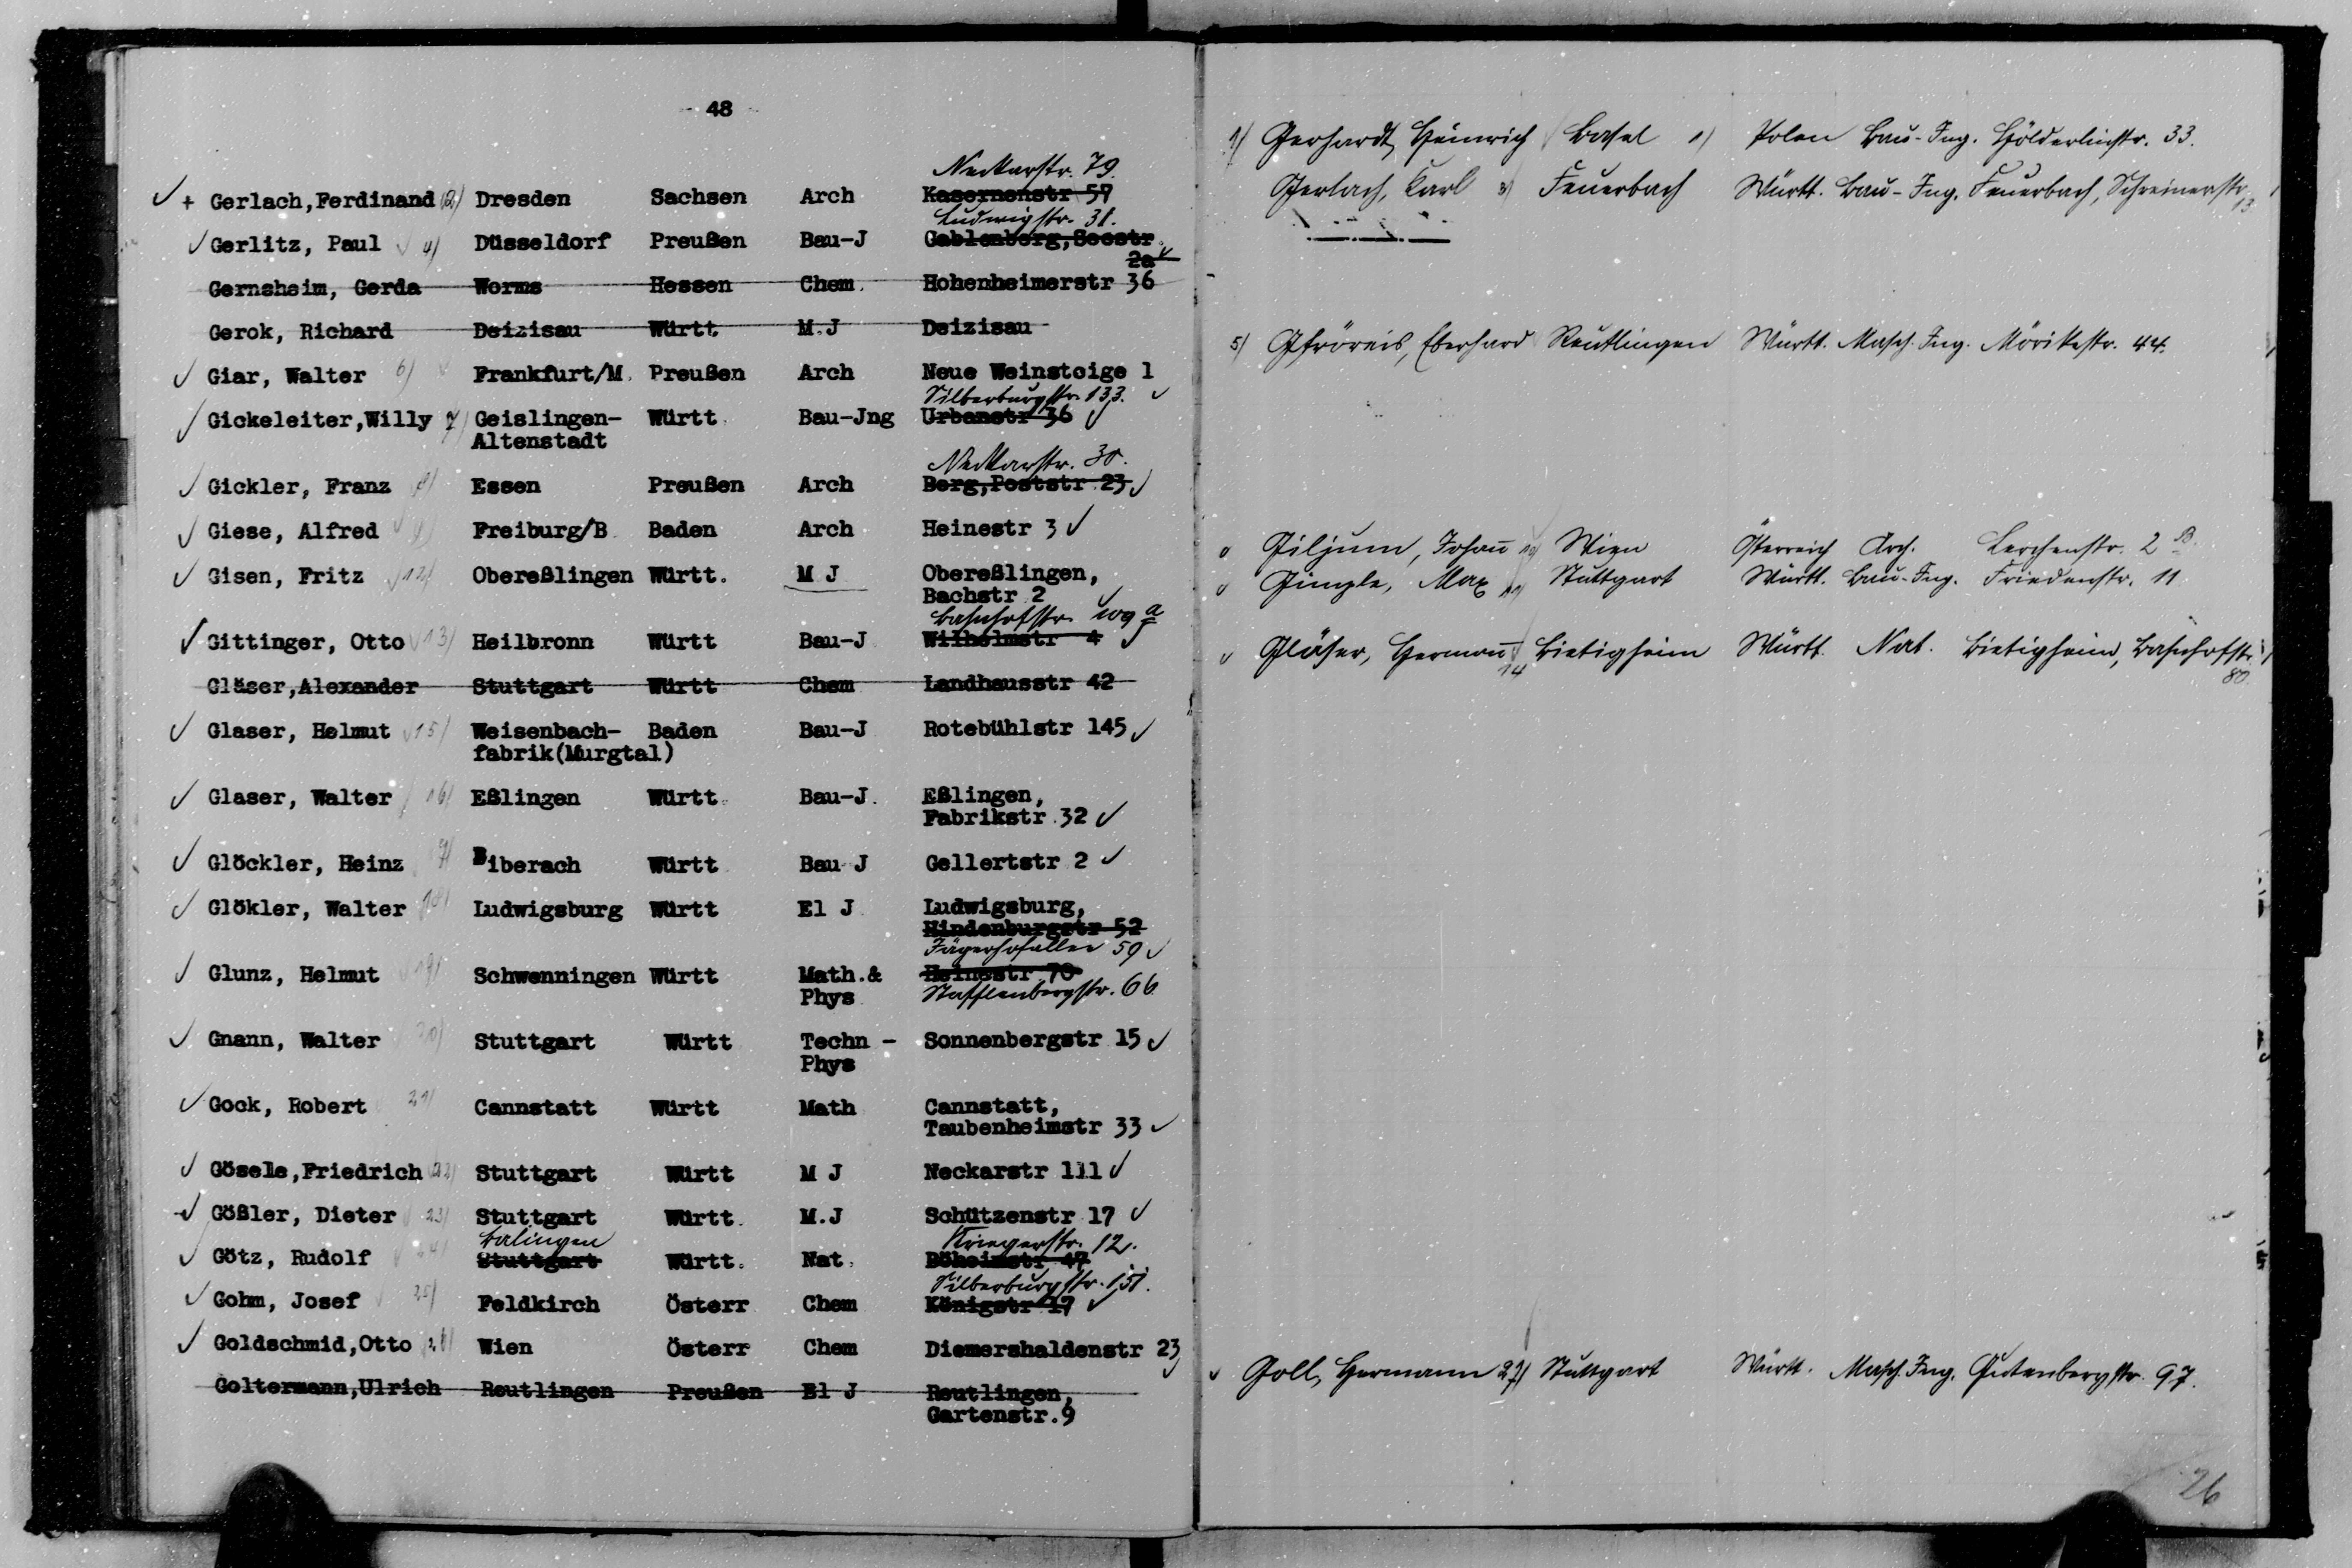 - 48 -
Neckarstr. 79.
+ Gerlach,Ferdinand 2) Dresden Sachsen Arch Kasernenstr 57
Ludwigstr. 31.
Gerlitz, Paul 4) Düsseldorf Preußen Bau-J Gablenberg,Seestr
2a
Gernsheim, Gerda Worms Hessen Chem. Hohenheimerstr 36
Gerok, Richard Deizisau Württ M.J Deizisau
Giar, Walter 6) Frankfurt/M. Preußen Arch Neue Weinsteige 1
Silberburgstr. 133.
Gickeleiter,Willy 7) Geislingen- Württ. Bau-Jng Urbanstr 36
Altenstadt
Neckarstr. 30.
Gickler, Franz 8) Essen Preußen Arch Berg,Poststr 23
Giese, Alfred 9) Freiburg/B Baden Arch Heinestr 3
Gisen, Fritz 12) Obereßlingen Württ. M J Obereßlingen,
Bachstr 2
Bahnhofstr. 109 a
Gittinger, Otto 13) Heilbronn Württ Bau-J Wilhelmstr 4
Gläser,Alexander Stuttgart Württ Chem Landhausstr 42
Glaser, Helmut 15) Weisenbach- Baden Bau-J Rotebühlstr 145
fabrik(Murgtal)
Glaser, Walter 16) Eßlingen Württ. Bau-J. Eßlingen,
Fabrikstr 32
Glöckler, Heinz 17) Biberach Württ Bau-J Gellertstr 2
Glökler, Walter 18) Ludwigsburg Württ El J Ludwigsburg,
Hindenburgstr 52
Jägerhofallee 59
Glunz, Helmut 19) Schwenningen Württ Math.& Heinestr 70
Phys Stafflenbergstr. 66
Gnann, Walter 20) Stuttgart Württ Techn - Sonnenbergstr 15
Phys
Gock, Robert 21) Cannstatt Württ Math Cannstatt,
Taubenheimstr 33
Gösele,Friedrich 22) Stuttgart Württ M J Neckarstr 111
Gößler, Dieter 23) Stuttgart Württ. M.J Schützenstr 17
Balingen Kriegerstr. 12.
Götz, Rudolf 24) Stuttgart Württ. Nat. Böheimstr 47
Silberburgstr. 151.
Gohm, Josef 25) Feldkirch Österr Chem Königstr 17
Goldschmid,Otto 26) Wien Österr Chem Diemershaldenstr 23
Goltermann,Ulrich Reutlingen Preußen El J Reutlingen,
Gartenstr.9
1) Gerhardt, Heinrich Basel 1) Polen Bau-Ing. Hölderlinstr. 33.
Gerlach, Karl 3) Feuerbach Württ. Bau-Ing. Feuerbach, Schreinerstr.
13
5) Gfröreis, Eberhard Reutlingen Württ. Masch. Ing. Mörikestr. 44.
Giljum, Johann 10) Wien Österreich Arch. Lerchenstr. 2 B.
Gimple, Max 11) Stuttgart Württ. Bau-Ing. Friedenstr. 11
Gläser, Hermann Bietigheim Württ. Nat. Bietigheim, Bahnhofstr.
14 80.
Goll, Hermann 27) Stuttgart Württ. Masch. Ing. Gutenbergstr. 97.
26